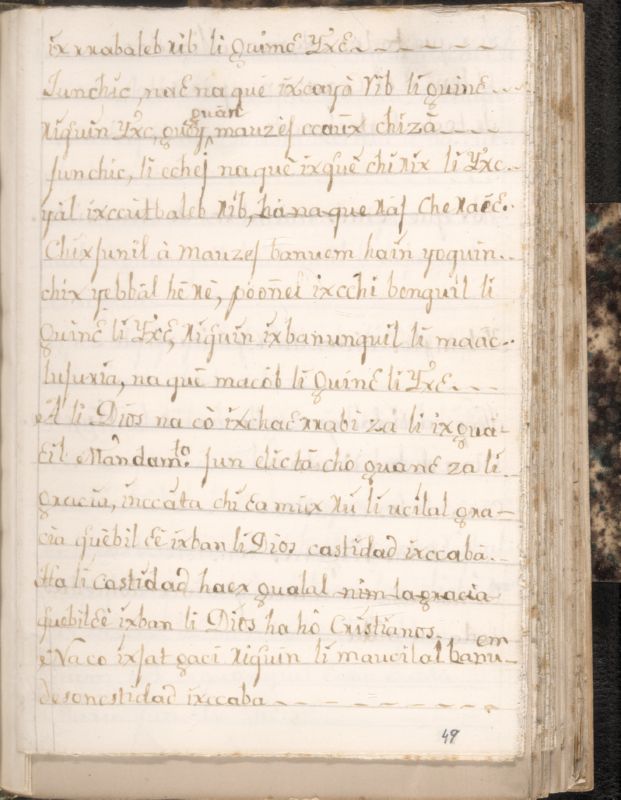 ix rrabaleb rib li quinɛ Yxɛ
Junchic, naɛ na què ixcayà rib li quinɛ
riquin Yxc, quan mauzès ccaüx chizà
Junchic, li cchej na què ixquê chirix li Yxc
yàl ixccutbaleb rib, bà na que ràs che raëɛ.
Chixjunil à mauzes banuem hain yoquin
chix yebbàl hê rê, pòoñel ixcchi bonguil li
quinɛ li Yxɛ, riquin ixbanunquil li maac
luxuria, na què macòb li quinɛ li Yxɛ.
A li Dios na cò ixchaɛrrabi za li ixqua-
ɛil Mandamto. Jun elictà chò quanɛ za li
gracia, inccàta chi ɛa mùx rù li ucilal gra-
cia quèbil ɛê ixban li Dios castidad ixccabà.
Ha li Castidad haex qualal nim la gracia
quebilɛê ixban li Dios ha hô Cristianos.
Naco ixjat qaci riquin li maucilal banu-
em
desonestidad ixccaba
49